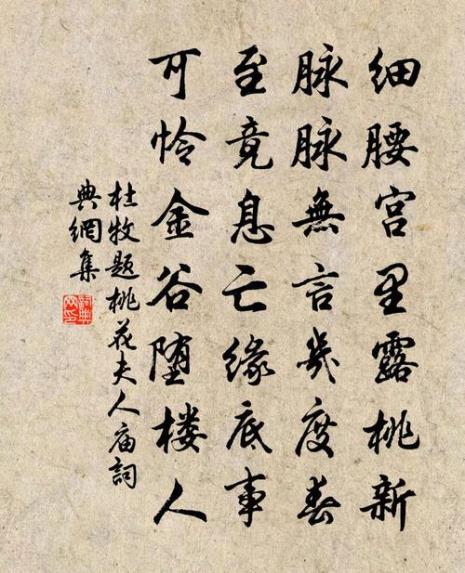 细腰宫里露桃新
脉脉無言幾度春
至竟息亡缘底事
可怜金谷堕楼人
杜牧题桃花夫人庙詞
典網集